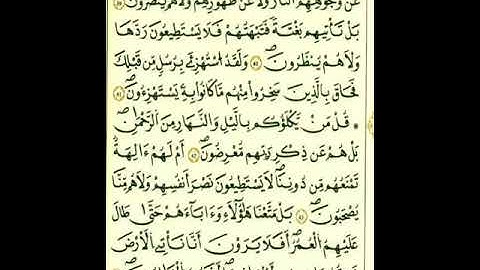 عَن وُجُوهِهِمُ النَّارَ وَلَا عَن ظُهُورِهِمْ وَلَا هُمْ يُنصَرُونَ
بَلْ تَأْتِيهِم بَغْتَةً فَتَبْهَتُهُمْ فَلَا يَسْتَطِيعُونَ رَدَّهَا
وَلَا هُمْ يُنظَرُونَ وَلَقَدِ اسْتُهْزِئَ بِرُسُلٍ مِّن قَبْلِكَ
فَحَاقَ بِالَّذِينَ سَخِرُوا مِنْهُم مَّا كَانُوا بِهِ يَسْتَهْزِءُونَ
* قُلْ مَن يَكْلَؤُكُم بِاللَّيْلِ وَالنَّهَارِ مِنَ الرَّحْمَٰنِ
بَلْ هُمْ عَن ذِكْرِ رَبِّهِم مُّعْرِضُونَ أَمْ لَهُمْ ءَالِهَةٌ
تَمْنَعُهُم مِّن دُونِنَا لَا يَسْتَطِيعُونَ نَصْرَ أَنفُسِهِمْ وَلَا هُم مِّنَّا
يُصْحَبُونَ بَلْ مَتَّعْنَا هَٰؤُلَاءِ وَءَابَاءَهُمْ حَتَّىٰ طَالَ
عَلَيْهِمُ الْعُمُرُ أَفَلَا يَرَوْنَ أَنَّا نَأْتِي الْأَرْضَ